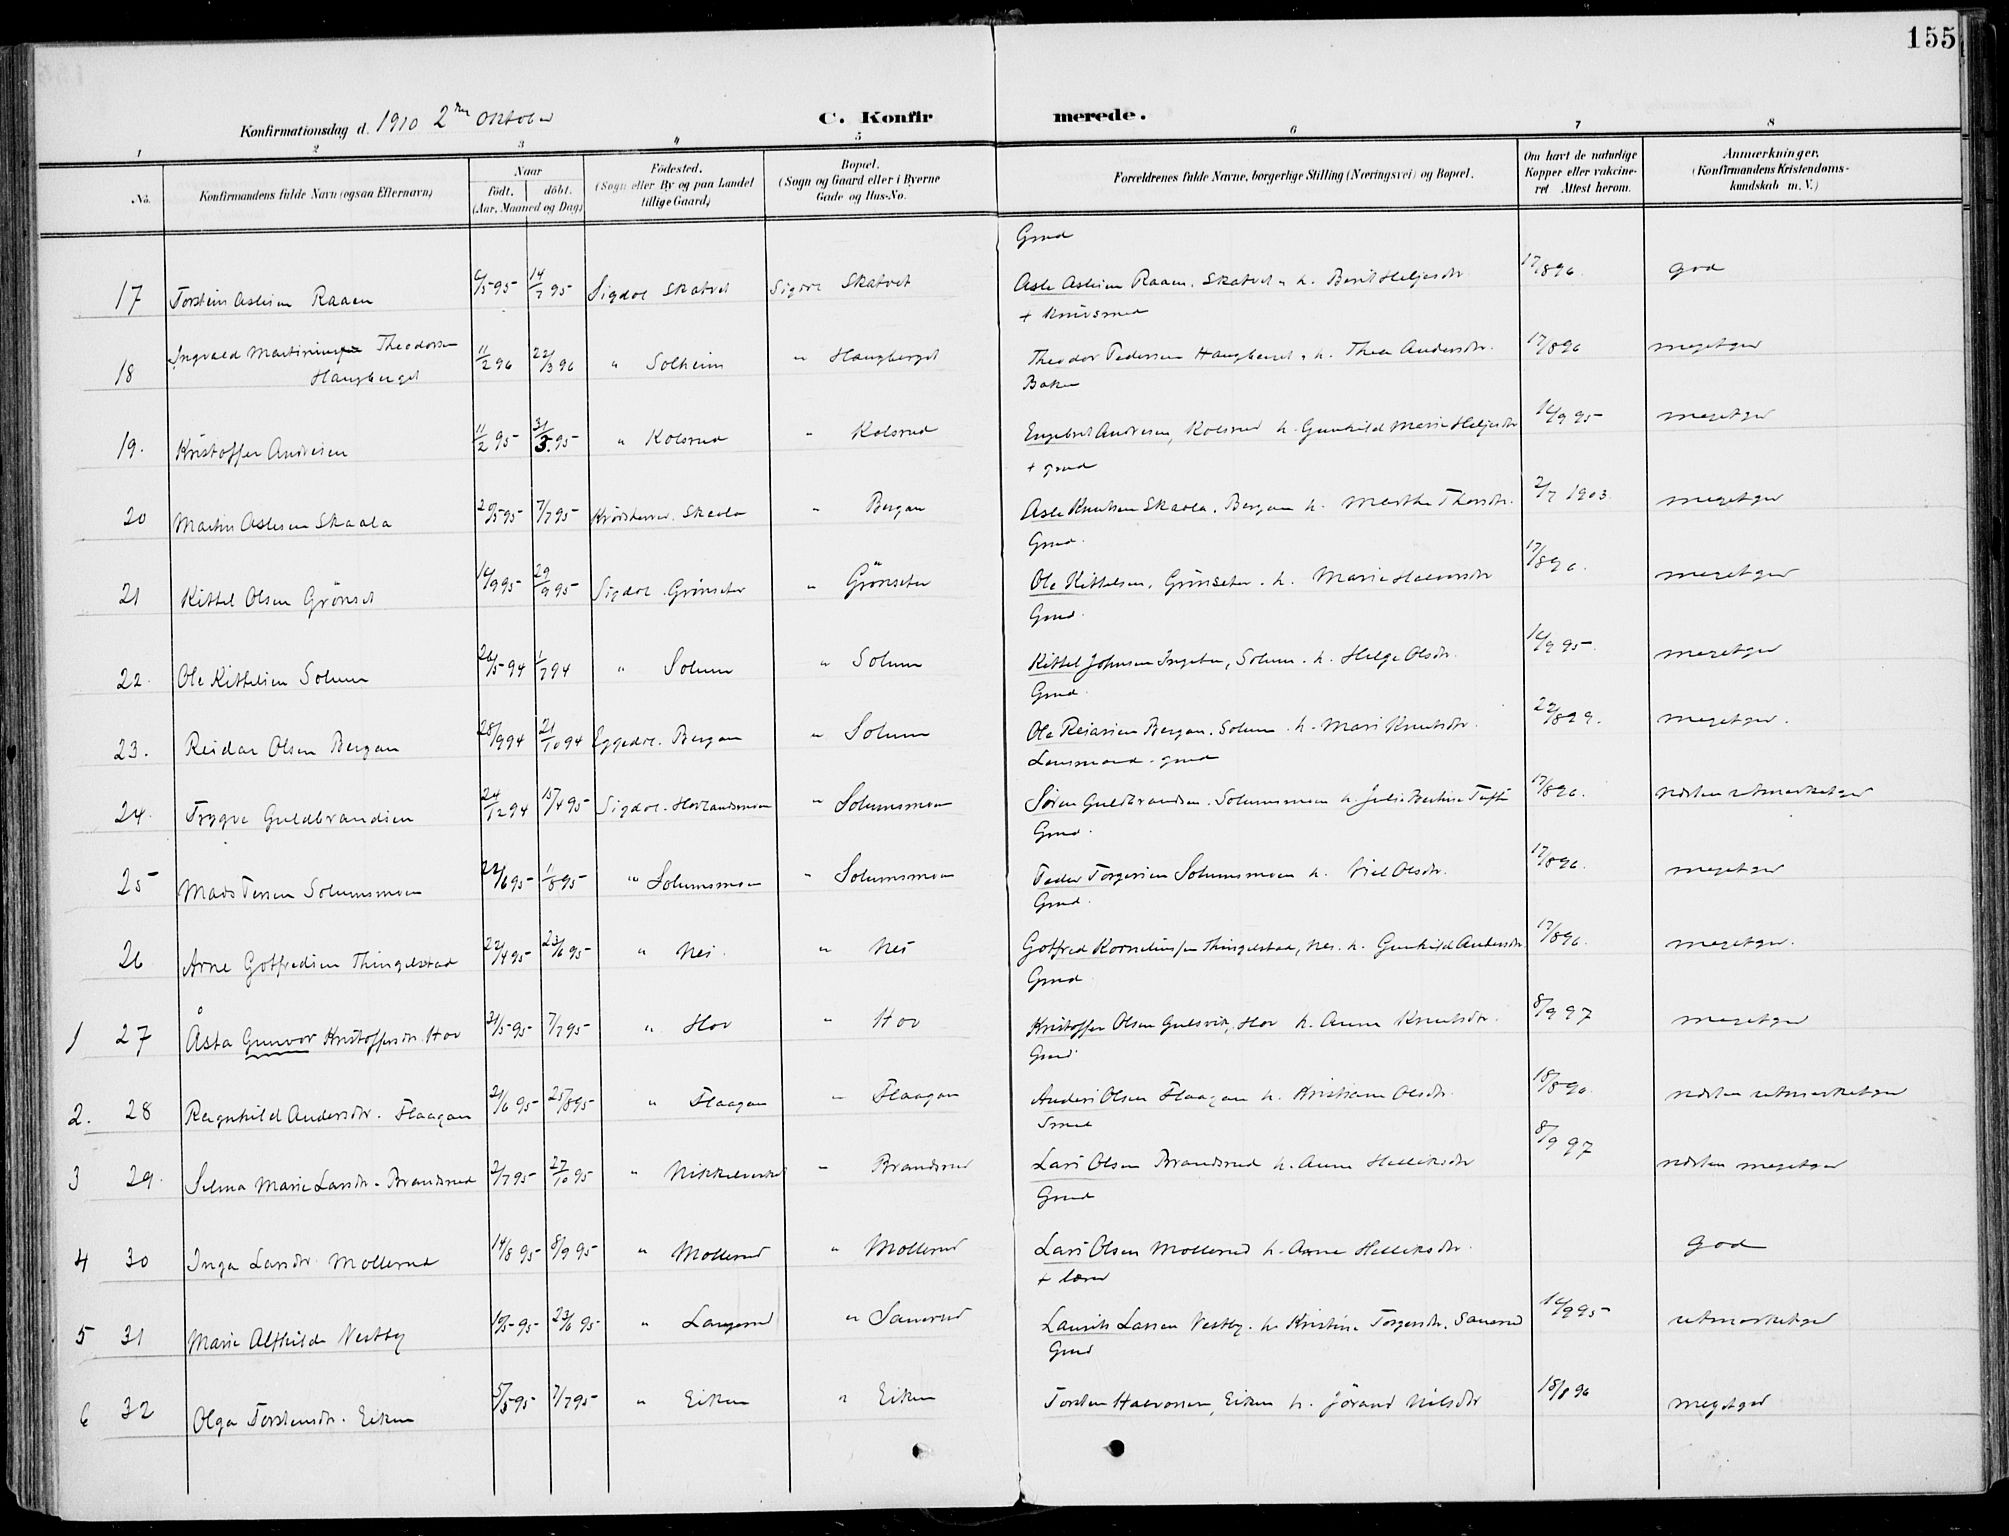 155
Konfirmationsdag d. 1910 2den Oktober
C. Konfirmerede.
1 2 3 4 5 6 7 8
No.
Konfirmandens fulde Navn (ogsaa Efternavn)
Naar
født. døbt.
(Aar, Maaned og Dag)
Fødested.
(Sogn eller By og paa Landet
tillige Gaard)
Bopæl.
(Sogn og Gaard eller i Byerne
Gade og Hus-No.
Forældrenes fulde Navne, borgerlige Stilling (Næringsvei) og Bopæl.
Om havt de naturlige
Kopper eller vakcine-
ret Attest herom.
Anmærkninger.
(Konfirmandens Kristendoms-
kundskab m. V.)
Gmd
17 Torstein Aslesen Raaen 6/5 95 14/7 95 Sigdal Skatvet Sigdal Skatvet Asle Aslesen Raaen, Skatvet h. Berit Heljesdr. 17/8 96. god
+ Husmd
18 Ingvald Martinius Theodorsen Haugberget 11/2 96 22/3 96 " Solheim " Haugberget Theodor Pedersen Haugberget h. Thea Andersdr. 17/8 96 megetgod
Baker
19. Kristoffer Andresen 11/2 95 31/3 95 " Kolsrud " Kolsrud Engebret Andresen, Kolsrud h. Gunhild Marie Heljesdr 16/9 95 megetgod
+ gmd
20 Martin Aslesen Skaala 20/5 95 7/7 95 Krødsherred. Skaala " Bergan Asle Knutsen Skaala, Bergan h. Marthe Thorsdr. 2/7 1903. megetgod
Gmd.
21 Kittel Olsen Grönset 16/9 95 29/9 95 Sigdal. Grönseter " Grönseter Ole Kittelsen, Grönseter. h. Marie Halvorsdr 17/8 96. megetgod
Gmd.
22. Ole Kittelsen Solum 26/5 94 1/7 94 " Solum " Solum Kittel Johnsen Ingebu, Solum. h. Helge Olsdr. 16/9 95. megetgod
Gmd.
23. Reidar Olsen Bergan 28/9 94 21/10 94 Eggedal. Bergan " Solum Ole Reiarsen Bergan. Solum h. Mari Knutsdr. 22/8 99. megetgod.
Lensmand. gmd
24. Trygve Guldbrandsen 24/12 94 15/4 95 Sigdal. Hovlandsmoen " Solumsmoen Søren Guldbrandsen. Solumsmoen h. Julie Bertine Tuft 17/8 96. næsten utmerketgod
Gmd.
25 Mads Persen Solumsmoen 22/6 95 1/8 95 " Solumsmoen " Solumsmoen Peder Torgersen Solumsmoen h. Sidsel Olsdr. 17/8 96. megetgod
Gmd.
26 Arne Gotfredsen Thingelstad 22/4 95 23/6 95 " Nes. " Nes Gotfred Korneliussen Thingelstad, Nes. h. Gunhild Andersdr. 17/8 96. megetgod.
Gmd
1 27 Åsta Gunvor Kristoffersdr. Hov 31/5 95 7/7 95 " Hov " Hov Kristoffer Olsen Gulsvik, Hov h. Anne Knutsdr. 8/9 97 megetgod
Gmd.
2. 28 Ragnhild Andersdr. Flaagan 21/6 95 25/8 95 " Flaagan " Flaagan Anders Olsen Flaagan h. Kristiane Olsdr. 18/8 96. næsten utmerketgod
Smed
3 29. Selma Marie Larsdr. Brandsrud 2/7 95 27/10 95 " Nikkelverket " Brandsrud Lars Olsen Brandsrud h. Anne Helleksdr 8/9 97 næsten megetgod
Gmd
4 30 Inga Larsdr. Mollerud 14/8 95 8/9 95 " Mollerud " Mollerud Lars Olsen Mollerud h. Anne Helleksdr. God
+ lærer
5 31 Marie Alfhilde Vestby 10/5 95 23/6 95 " Langerud " Sanerud Laurits Larsen Vestby. h. Kristine Torgersdr. Sanerud 16/9 95 utmerketgod
Gmd
6 32 Olga Torstensdr. Eiken 5/5 95 7/7 95 " Eiken " Eiken Torsten Halvorsen, Eiken h. Jörand Nilsdr 18/8 96 megetgod